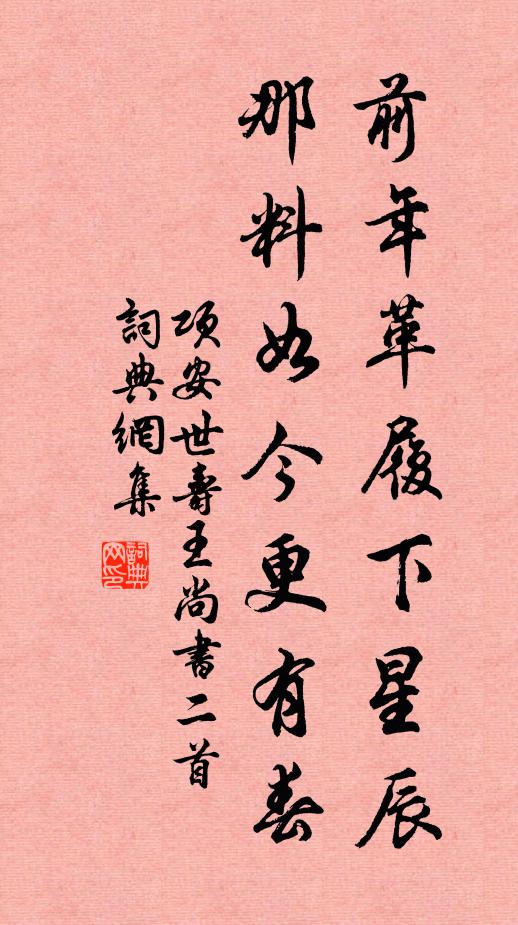 前年革履下星辰
那料如今更有春
項安世壽王尚書二首
詞典網集
詞典网印